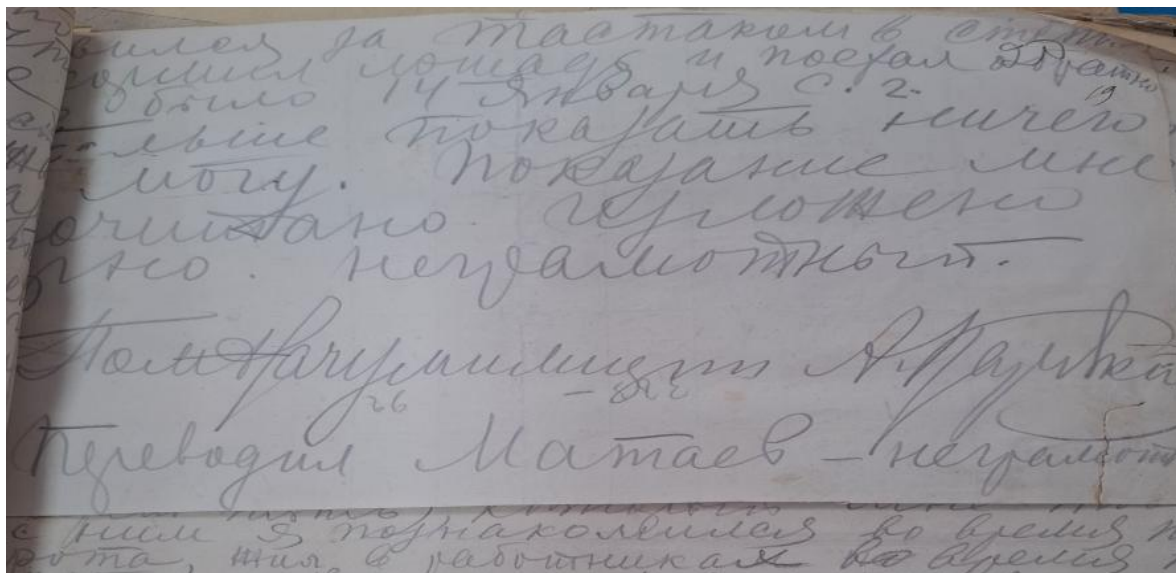 вился за тастаком в степи
кормил лошадь и поехал обратно
было 14 января с. г.
больше показать ничего
могу. Показание мне
прочитано изложено
верно. неграмотный.
Пом Нач Умилиции
Переводил Матаев – неграмот
с ним я познакомился во время
жил в работниках во время